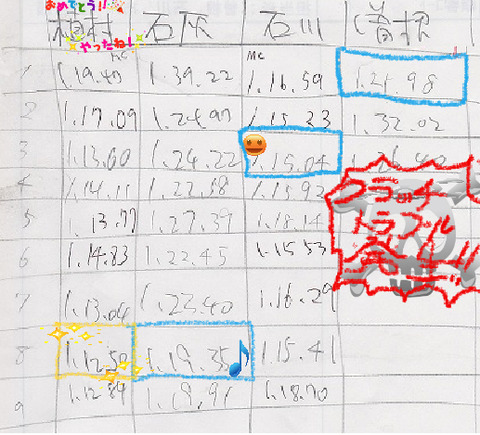 おめでとう!!
植村 石灰 石川
やったね!
MC MC
1 1.19.47 1.39.22 1.16.59 1.21.98
2 1.17.09 1.24.97 1.15.23 1.32.02
3 1.13.60 1.24.22 1.15.04
4 1.22.68
クラッチ
トラブル
発生!!
5 1.13.77 1.27.37 1.18.14
6 1.14.83 1.22.45 1.15.53
7 1.13.04 1.23.40 1.16.29
8 1.12.50 1.19.35 1.15.41
9 1.12.84 1.19.97 1.18.70